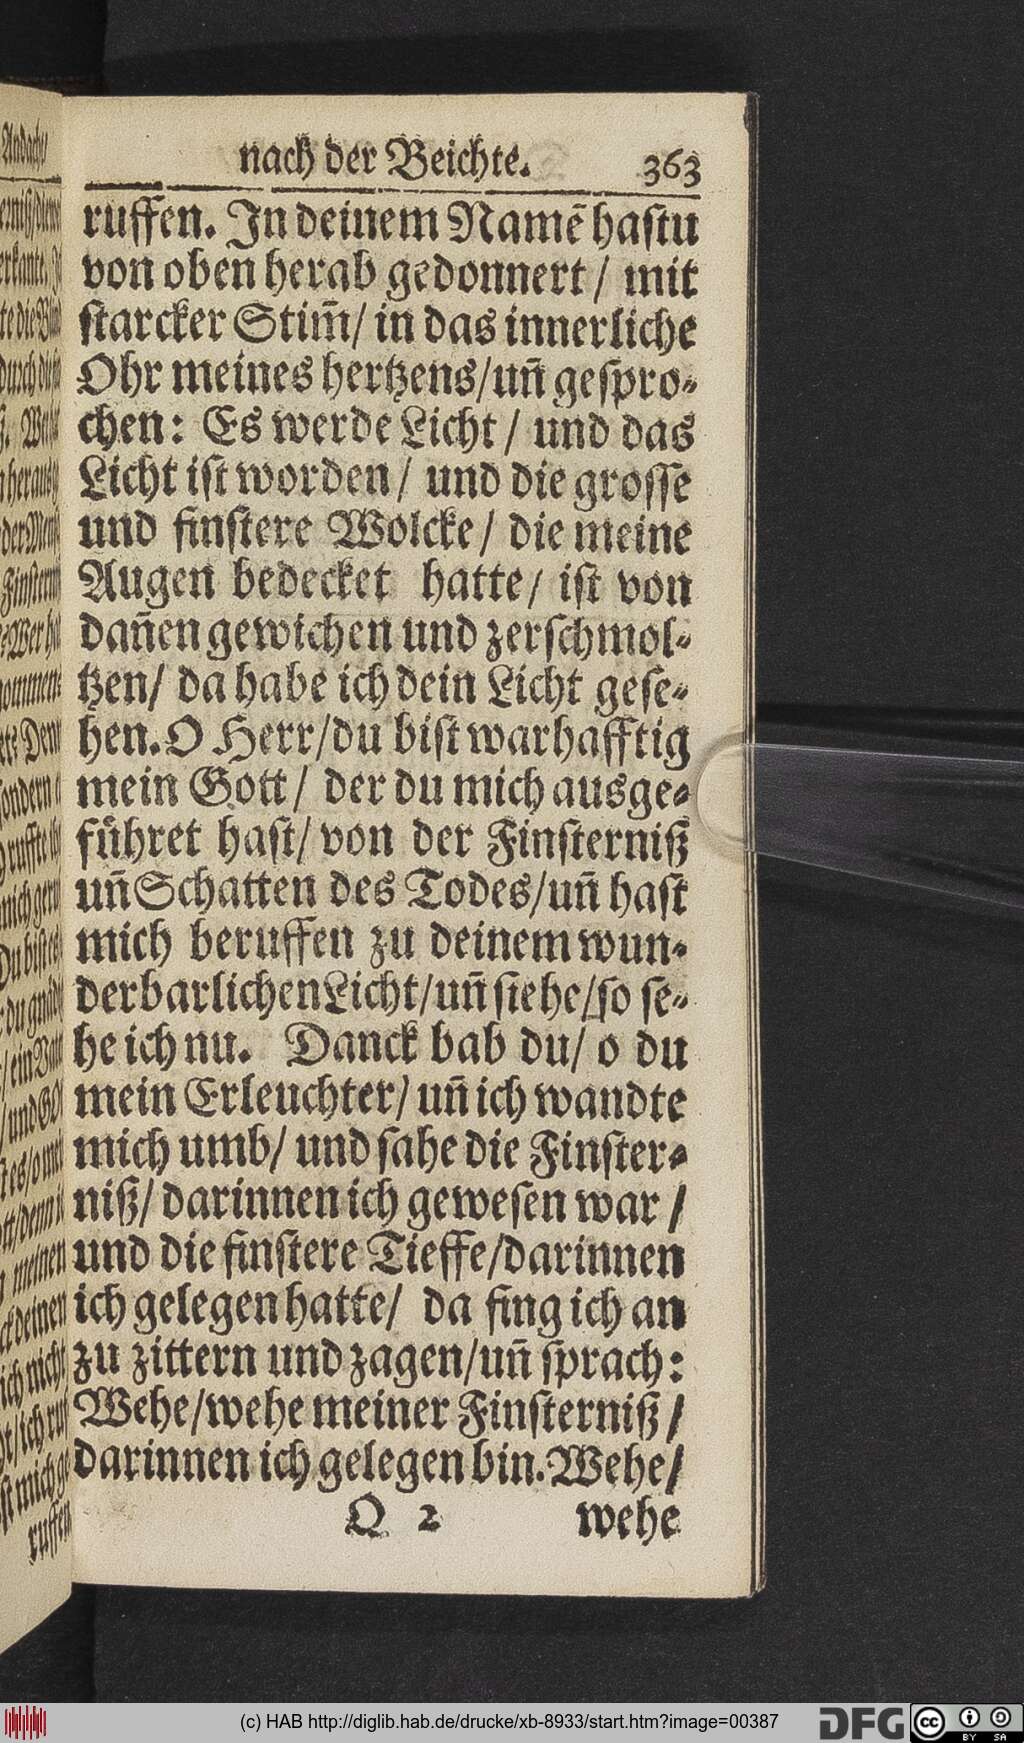 nach der Beichte. 363
ruffen. In deinem Namẽ hastu
von oben herab gedonnert / mit
starcker Stim̃/ in das innerliche
Ohr meines hertzens/un̄ gespro-
chen: Es werde Licht / und das
Licht ist worden / und die grosse
und finstere Wolcke / die meine
Augen bedecket hatte / ist von
dan̄en gewichen und zerschmol-
tzen/ da habe ich dein Licht gese-
hen. O Herr/du bist warhafftig
mein Gott / der du mich ausge-
führet hast/ von der Finsterniß
un̄ Schatten des Todes/un̄ hast
mich beruffen zu deinem wun-
derbarlichen Licht/un̄ siehe/so se-
he ich nu. Danck bab du/ o du
mein Erleuchter/ un̄ ich wandte
mich umb/ und sahe die Finster-
niß/ darinnen ich gewesen war /
und die finstere Tieffe/darinnen
ich gelegen hatte/ da fing ich an
zu zittern und zagen/un̄ sprach:
Wehe/wehe meiner Finsterniß /
darinnen ich gelegen bin. Wehe/
Q 2 wehe
ruffen
(c) HAB http://diglib.hab.de/drucke/xb-8933/start.htm?image=00387
DFG
cc BY SA